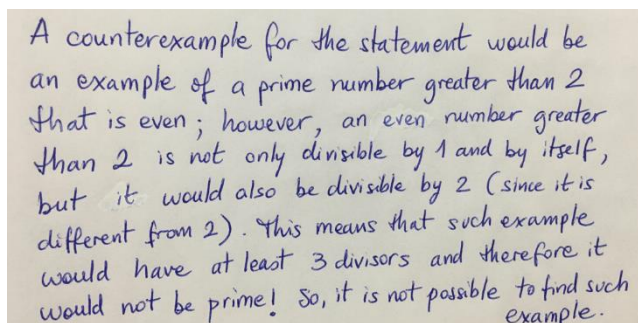 A counterexample for the statement would be
an example of a prime number greater than 2
that is even; however, an even number greater
than 2 is not only divisible by 1 and by itself,
but it would also be divisible by 2 (since it is
different from 2). This means that such example
would have at least 3 divisors and therefore it
would not be prime! So, it is not possible to find such
example.